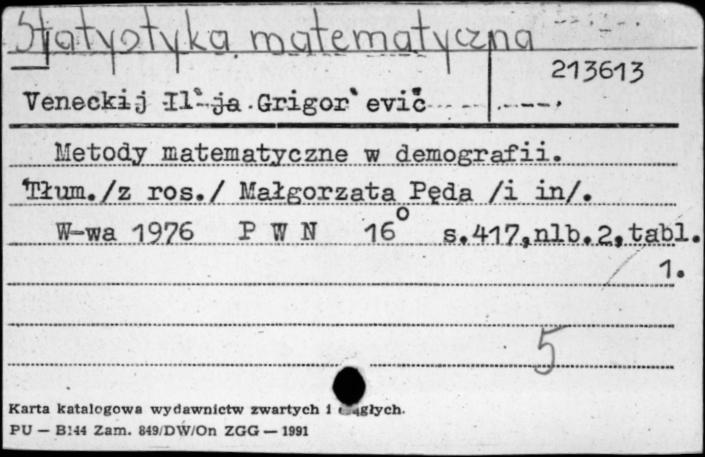 Statystyka matematyczna
213613
Veneckij Il`ja Grigor`evič
Metody matematyczne w demografii.
Tłum./z ros./ Małgorzata Pęda /i in/.
W-wa 1976 P W N 16° s.417,nlb.2,tabl.
1.
5
Karta katalogowa wydawnictw zwartych i ciągłych.
PU — B144 Zam. 849/DW/On ZGG — 1991